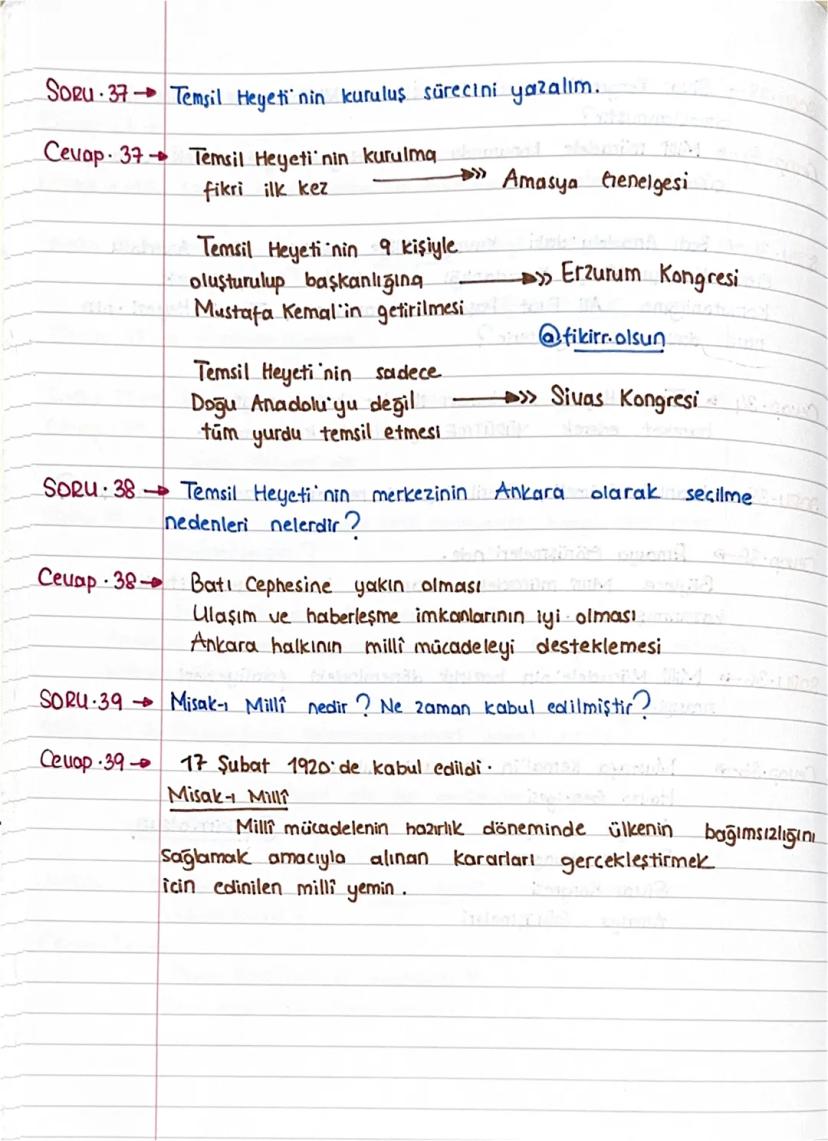 SORU.37 → Temsil Heyeti'nin kuruluş sürecini yazalım.
Cevap.37 → Temsil Heyeti'nin kurulma
fikri ilk kez →»» Amasya Genelgesi
Temsil Heyeti'nin 9 kişiyle
oluşturulup başkanlığına →»» Erzurum Kongresi
Mustafa Kemal'in getirilmesi
@fikirr.olsun
Temsil Heyeti'nin sadece
Doğu Anadolu'yu değil →»» Sivas Kongresi
tüm yurdu temsil etmesi
SORU.38 → Temsil Heyeti'nin merkezinin Ankara olarak secilme
nedenleri nelerdir?
Cevap.38 → Batı Cephesine yakın olması
Ulaşım ve haberleşme imkanlarının iyi olması
Ankara halkının millî mücadeleyi desteklemesi
SORU.39 → Misak-ı Millî nedir? Ne zaman kabul edilmiştir?
Cevap.39 → 17 Şubat 1920'de kabul edildi.
Misak-ı Millî
Millî mücadelenin hazırlık döneminde ülkenin bağımsızlığını
sağlamak amacıyla alınan kararları gercekleştirmek
icin edinilen millî yemin.